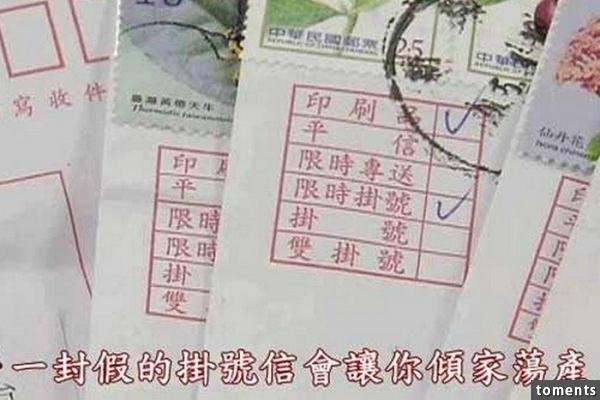 中華民國郵票
REPUBLIC OF CHINA
25
中華民國
臺灣黃億天牛
仙丹花
寫收件
印刷品
平信
限時專送
限時掛號
掛號
雙掛號
印刷
平
限時
限時
掛
雙
印
平
限
限
掛
雙
一封假的掛號信會讓你傾家蕩產
toments